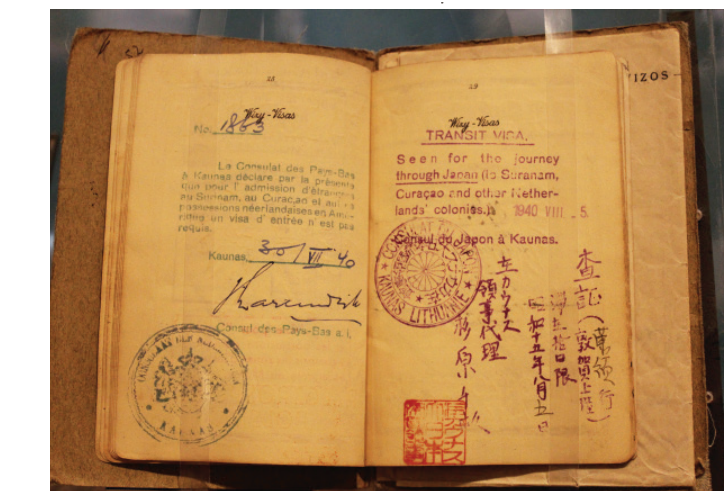 18
Wizy - Visas
No. 1863
Le Consulat des Pays-Bas
à Kaunas déclare par la présente
que pour l' admission d'étrangers
au Surinam, au Curaçao et aut
possessions néerlandaises en Amé-
rique un visa d' entrée n est pas
requis.
Kaunas, 30/VII 40
Consul des Pays-Bas a. i.
KAUNAS
19
Wizy - Visas
TRANSIT VISA.
Seen for the journey
through Japan (to Suranam,
Curaçao and other Nether-
lands' colonies.) 1940 VIII 5.
Consul du Japon à Kaunas.
CONSULAT DU JAPON
KAUNAS LITHUANIE
査証
(蘭領行)
(敦賀上陸)
昭和十五年八月五日
在カウナス
領事代理
杉原
VIZOS